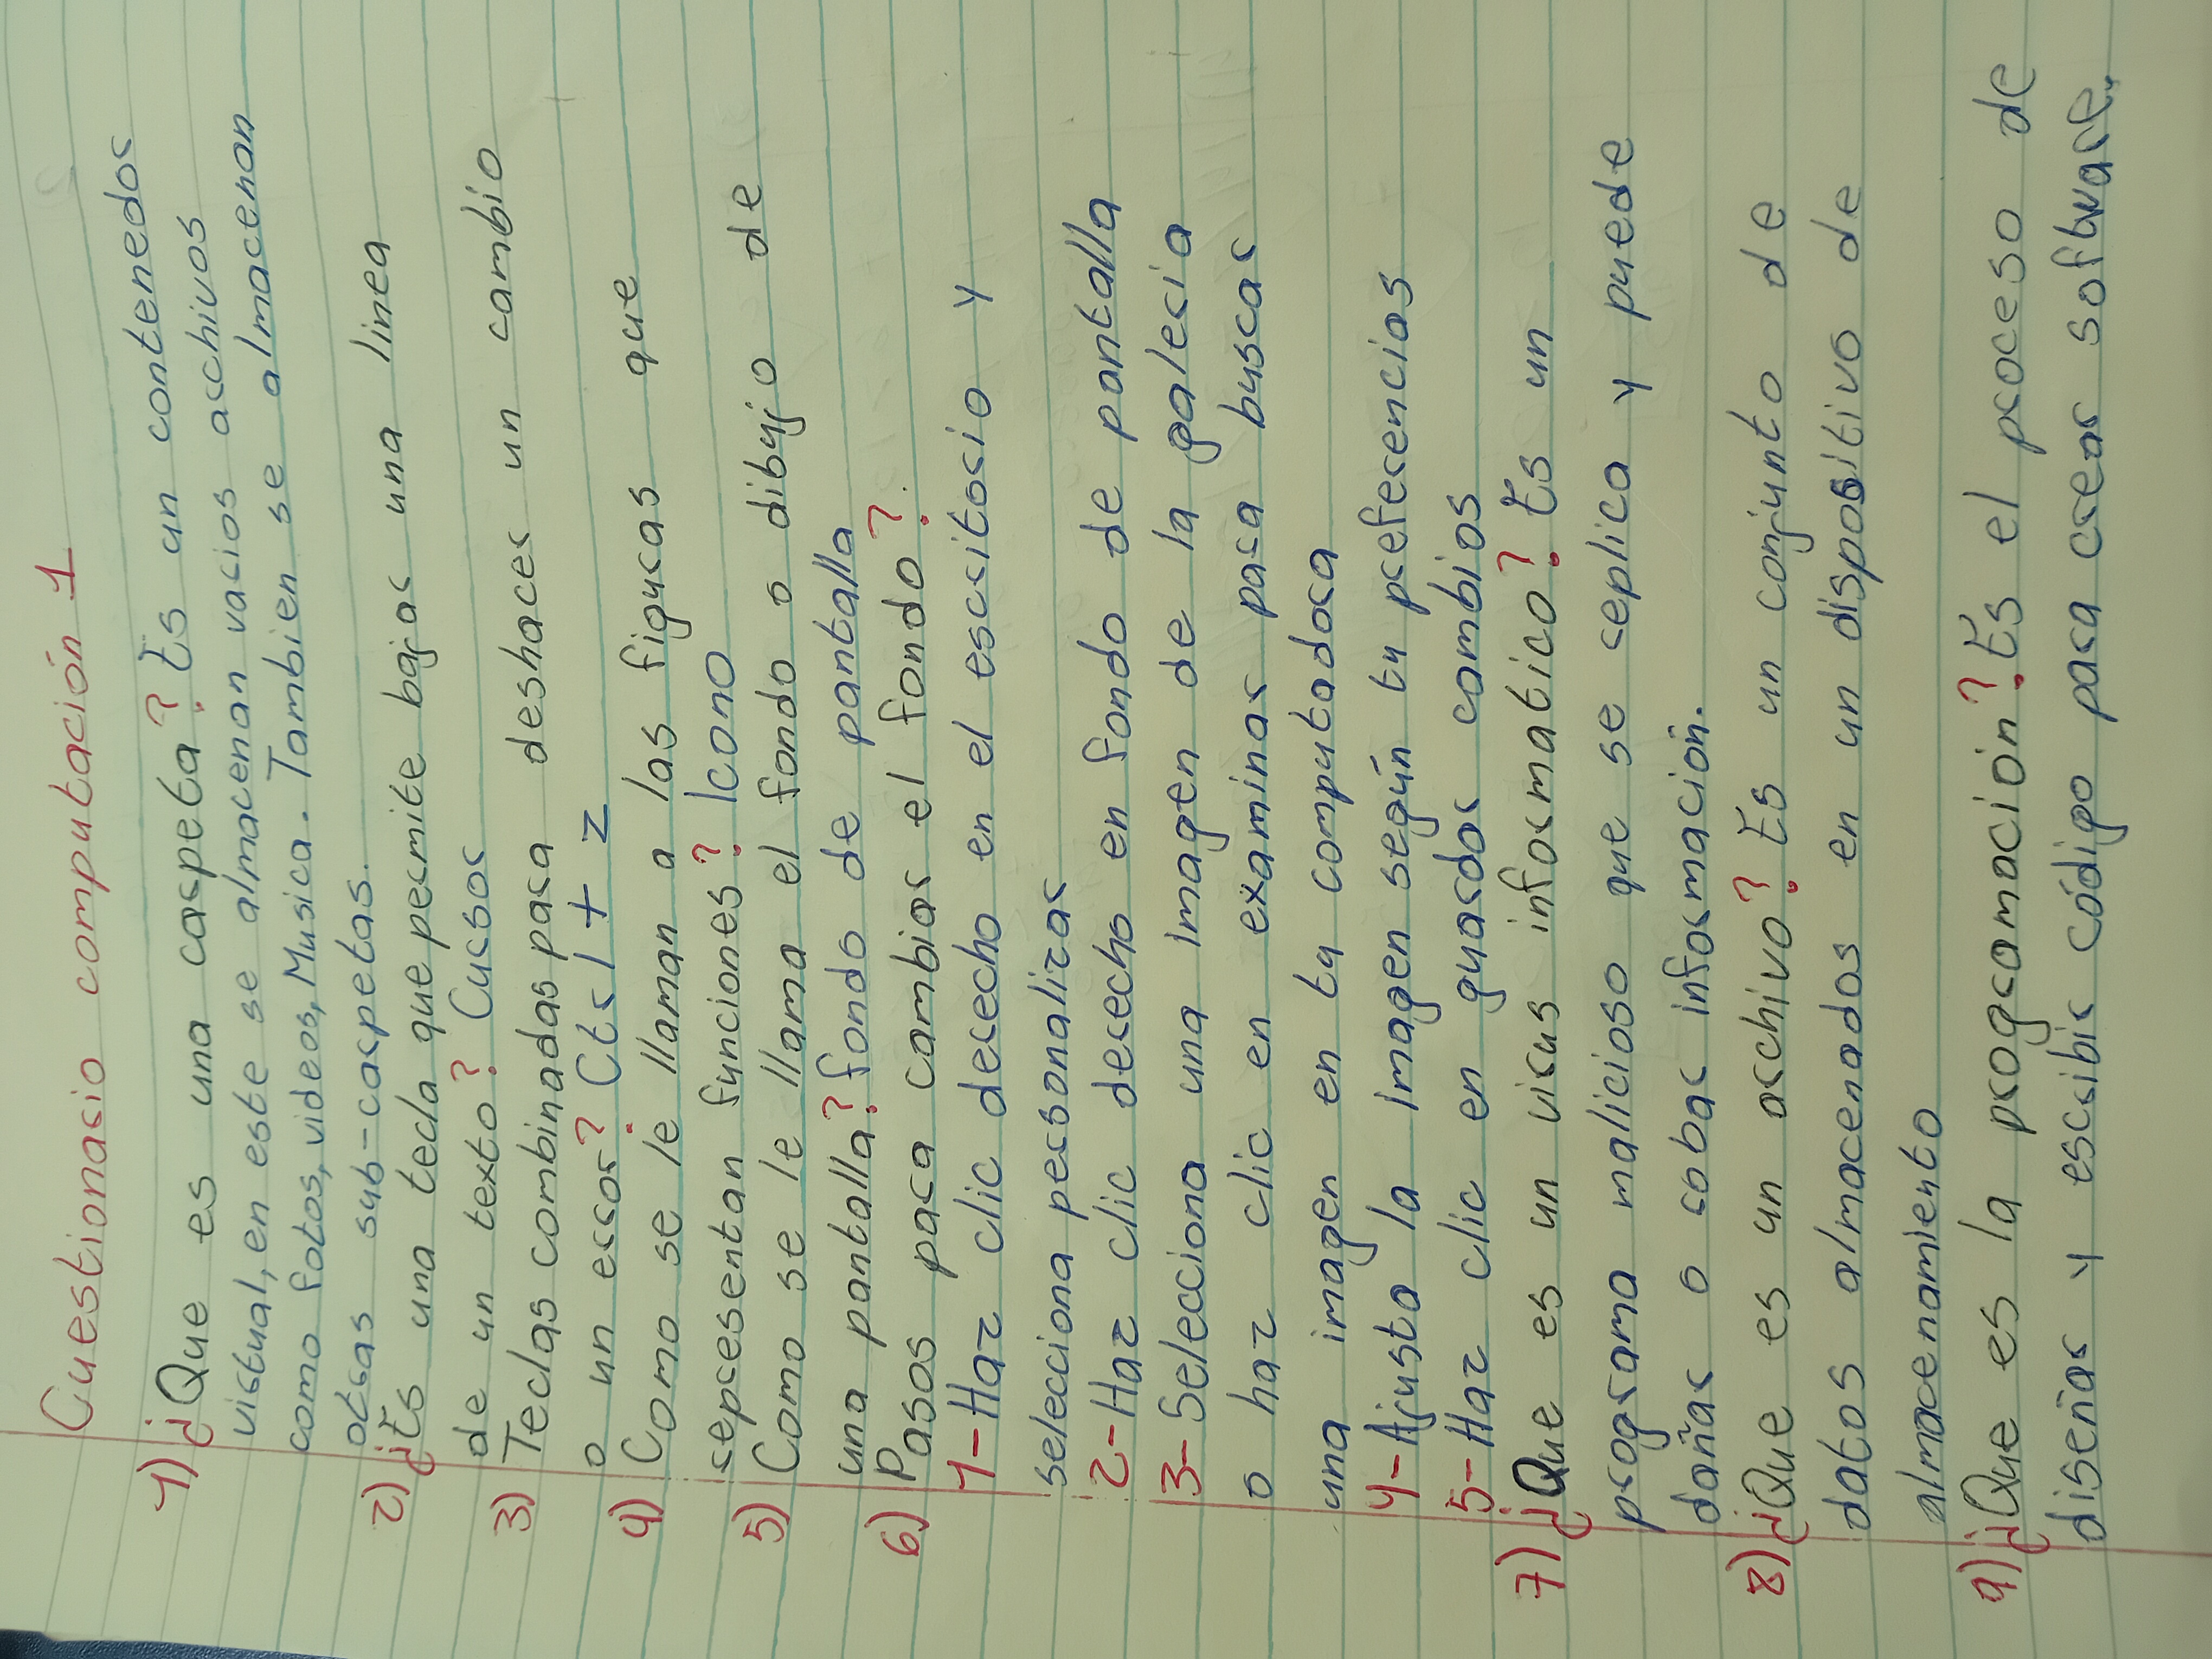 Cuestionario computación 1
1) ¿Que es una carpeta? Es un contenedor
virtual, en este se almacenan varios archivos
como fotos, videos, Musica. Tambien se almacenan
otras sub-carpetas.
2) ¿Es una tecla que permite bajar una linea
de un texto? Cursor
3) Teclas combinadas para deshacer un cambio
o un error? Ctrl + z
4) Como se le llaman a las figuras que
representan funciones? Icono
5) Como se le llama el fondo o dibujo de
una pantalla? fondo de pantalla
6) Pasos para cambiar el fondo?
1- Haz clic derecho en el escritorio y
selecciona personalizar
2- Haz clic derecho en fondo de pantalla
3- Selecciona una imagen de la galeria
o haz clic en examinar para buscar
una imagen en tu computadora
4- Ajusta la imagen según tu preferencias
5- Haz clic en guardar cambios
7) ¿Que es un virus informatico? Es un
programa malicioso que se replica y puede
dañar o robar información.
8) ¿Que es un archivo? Es un conjunto de
datos almacenados en un dispositivo de
almacenamiento
9) ¿Que es la programación? Es el proceso de
diseñar y escribir código para crear software.